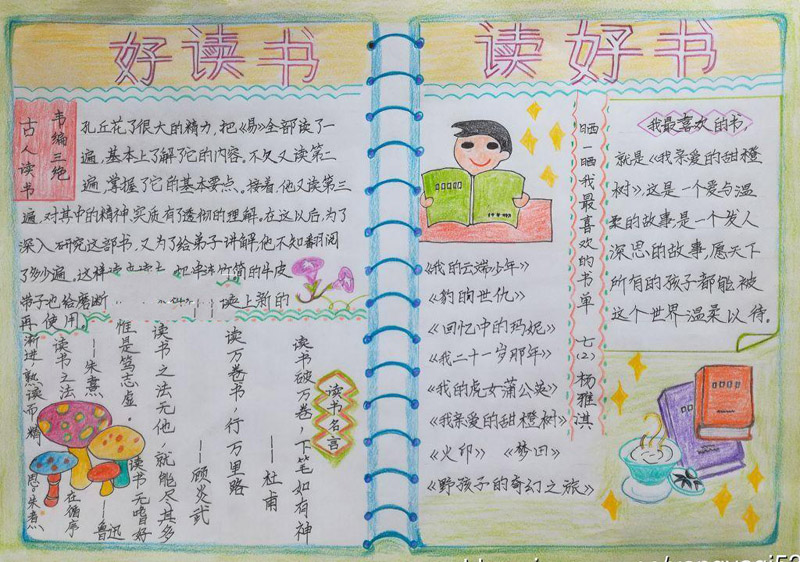 好读书
读好书
古人读书
韦编三绝
孔丘花了很大的精力，把《易》全部读了一
遍，基本上了解了它的内容。不久又读第二
遍，掌握了它的基本要点。接着，他又读第三
遍，对其中的精神、实质有了透彻的理解。在这以后，为了
深入研究这部书，又为了给弟子讲解，他不知翻阅
了多少遍。这样读
把串连竹简的牛皮
带子也给磨断
换上新的
再使用。
读书名言
读书破万卷，下笔如有神
——杜甫
读万卷书，行万里路
——顾炎武
读书之法无他，惟是笃志虚
——朱熹
读书无嗜好，就能尽其多
——鲁迅
读书之法
在循序
渐进，熟读而精
思。朱熹
晒一晒我最喜欢的书单
七(2) 杨雅淇
《我的云端少年》
《豹的世仇》
《回忆中的玛妮》
《我二十一岁那年》
《我的虎女蒲公英》
《我亲爱的甜橙树》
《火印》 《梦田》
《野孩子的奇幻之旅》
我最喜欢的书，
就是《我亲爱的甜橙
树》，这是一个爱与温
柔的故事，是一个发人
深思的故事，愿天下
所有的孩子都能被
这个世界温柔以待。